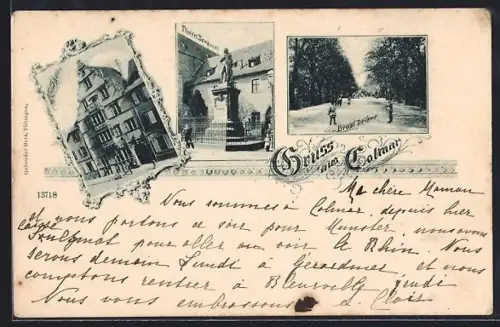 Gruss aus Colmar
Gebrüder Metz, Tübingen.
13718
Ma chère Maman
Nous sommes à Colmar, depuis hier
et nous partons ce soir pour Munster, nous avons
pour aller voir le Rhin. Nous
serons demain Lundi à Gérardmer, et nous
comptons rentrer à Bleurville Jeudi
Nous vous embrassons